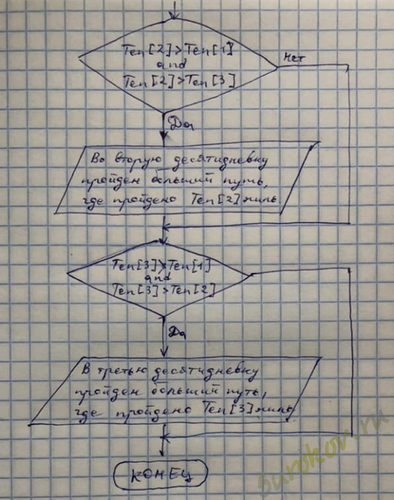 Теп[2]>Теп[1]
and
Теп[2]>Теп[3]
Нет
Да
Во вторую десятидневку
пройден больший путь,
где пройдено Теп[2] миль.
Теп[3]>Теп[1]
and
Теп[3]>Теп[2]
Да
В третью десятидневку
пройден больший путь,
где пройдено Теп[3] миль
КОНЕЦ
5urokov.ru